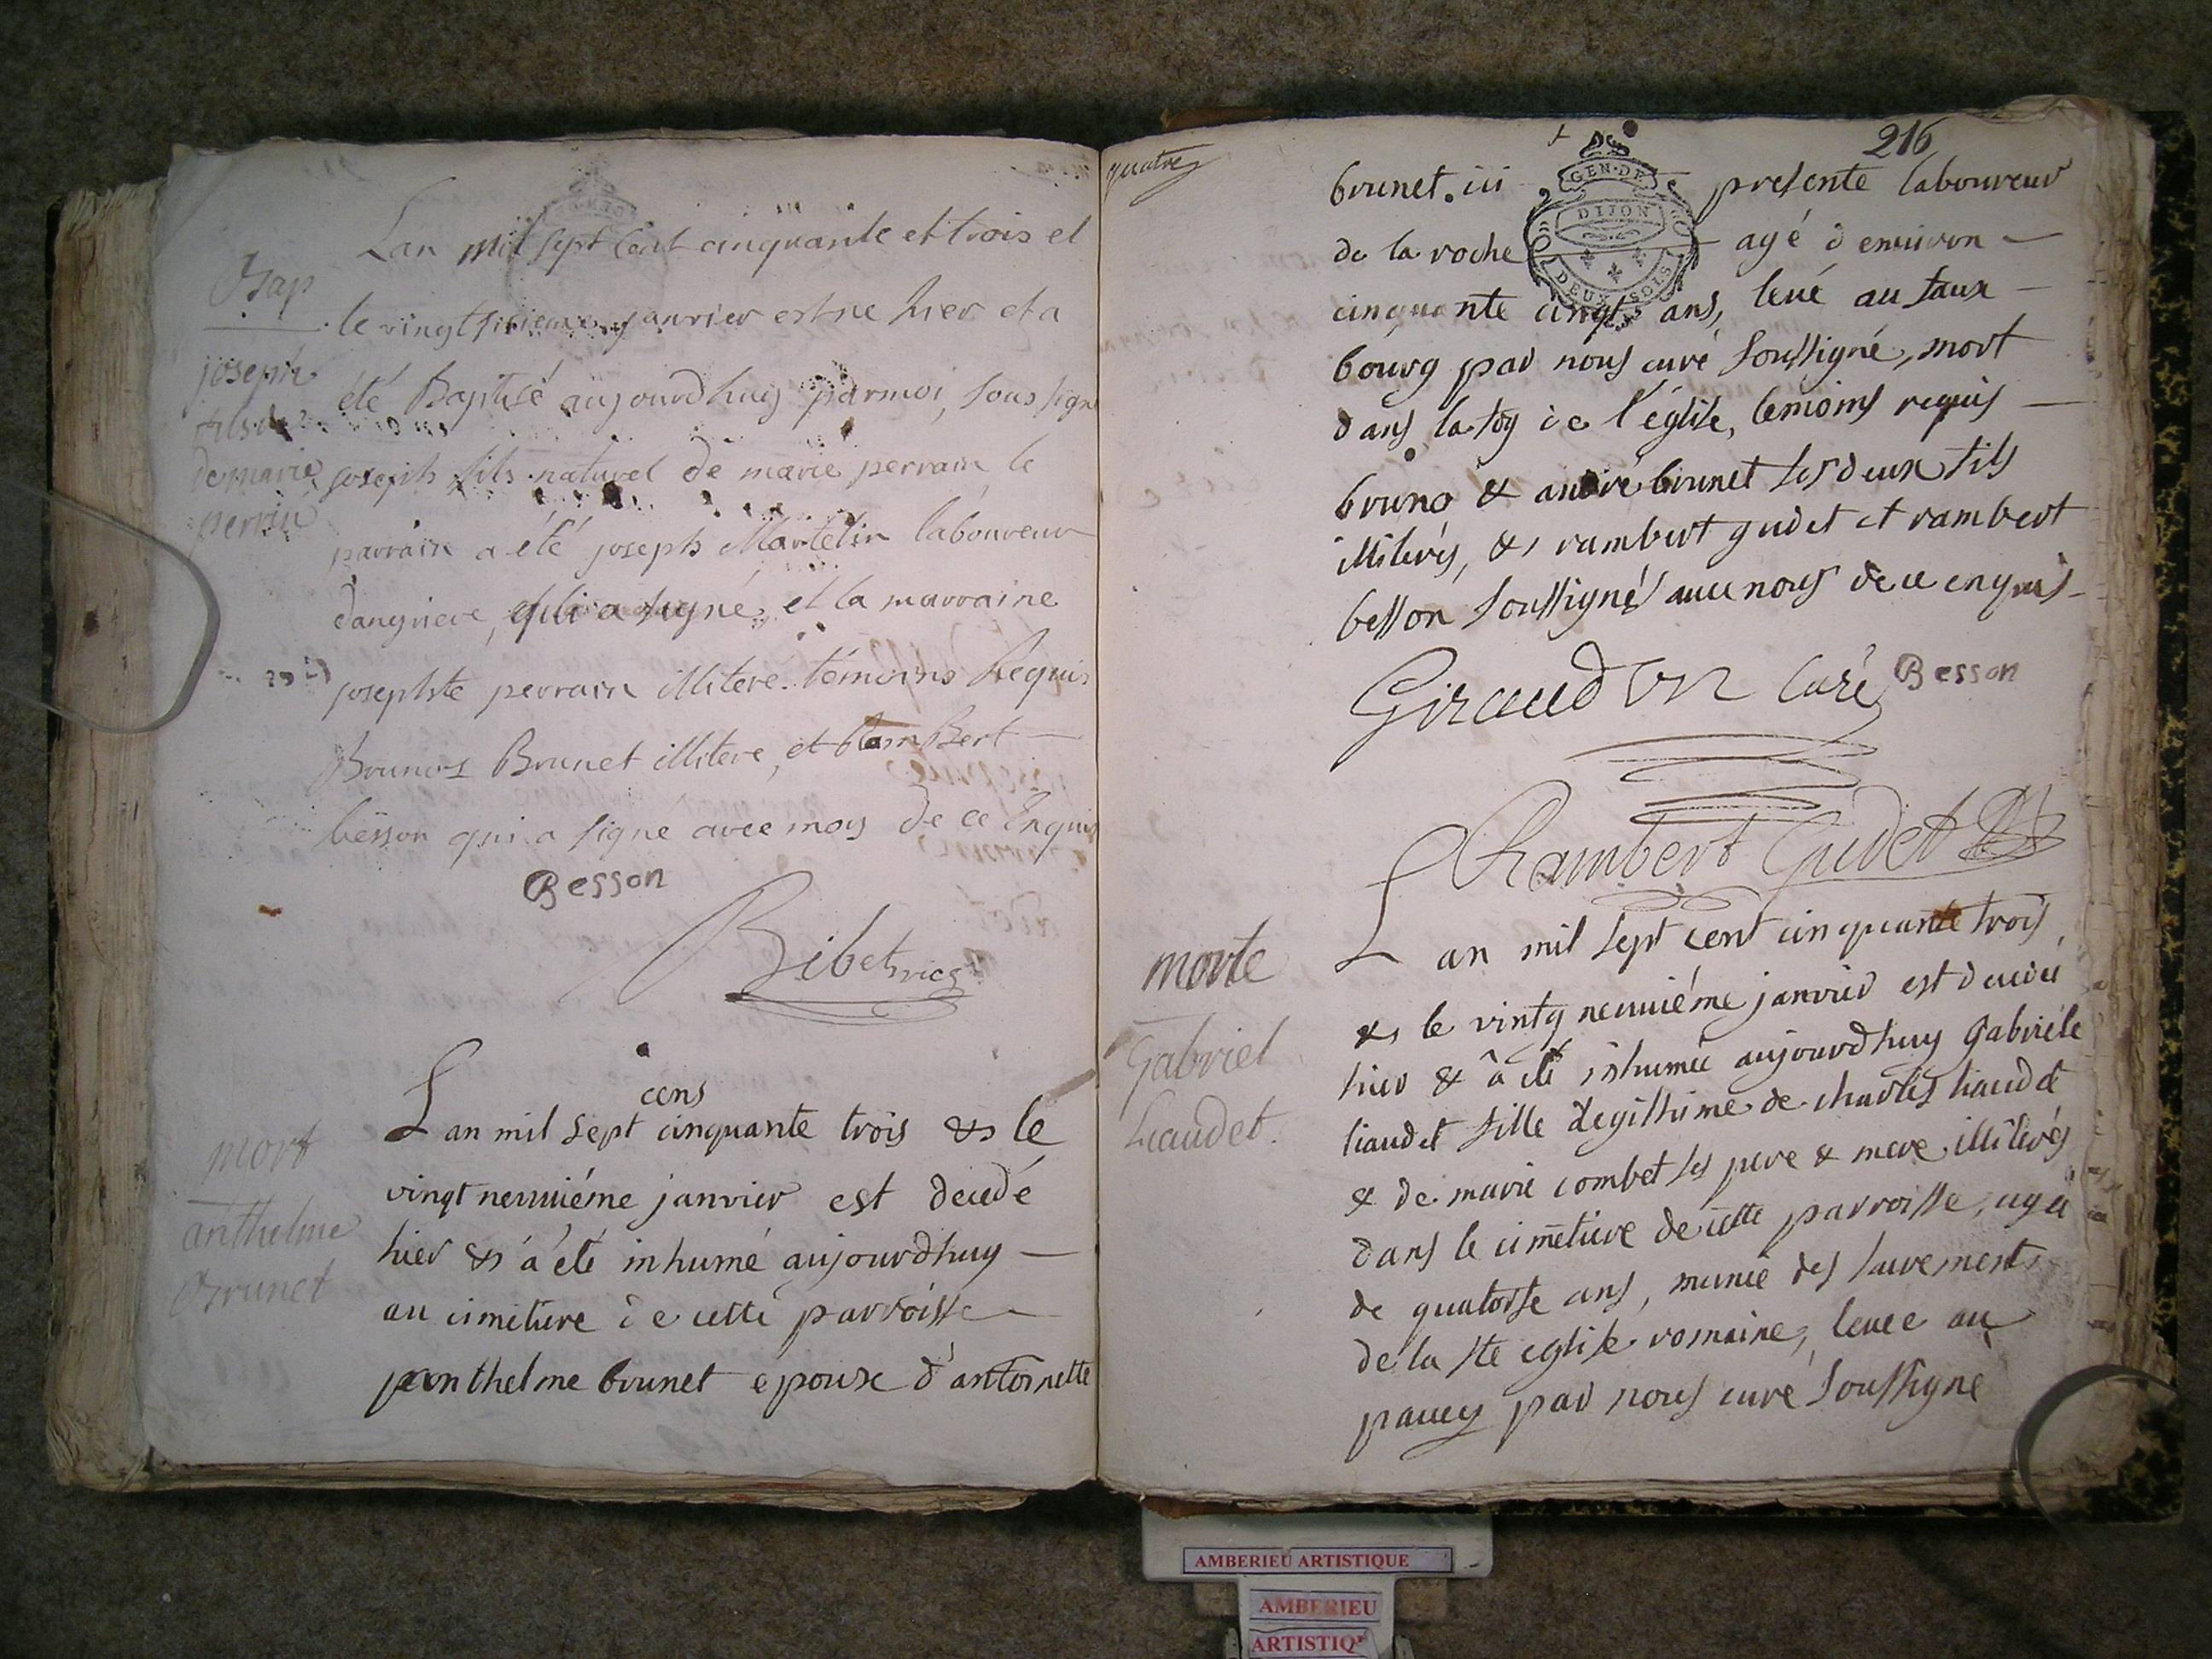 Bap
joseph
fils de
de marie
perrin
Lan mil sept cent cinquante et trois et
le vingtsixieme janvier est né hier et a
été Baptisé aujourdhuy par moi, sous signé
joseph fils naturel de marie perrain le
parrain a été joseph Martelin laboureur
dangriere, qui a signé, et la marraine
josephte perrain illiteré. témoins Requis
Brunos Brunet illitere, et RamBert
besson qui a signé avec moy de ce Enquis
Besson
Ribet vicr
mort
anthelme
Brunet
cens
Lan mil sept cinquante trois & le
vingt neuuiéme janvier est decedé
hier & a été inhumé aujourdhuy
au cimetiere de cette parroisse
anthelme brunet epoux d'antoinette
quatre
216
brunet. ici presente laboureur
de la roche agé d'enuiron
GEN. DE
DIJON
DEUX SOLS
cinquante cinqt ans, leué au faux
bourg par nous curé soussigné, mort
dans la foy de l'église, temoins requis
bruno & andré brunet ses deux fils
illiterés, & rambert gudet et rambert
besson soussignés auec nous de ce enquis
Giraud curé Besson
Rambert Gudet
morte
Gabriel
Liaudet.
Lan mil sept cent cinquante trois
& le vintg neuuiéme janvier est decedée
hier & a été inhumée aujourdhuy Gabriele
liaudet fille legithime de charles liaudet
& de marie combet ses pere & mere illiterés
dans le cimetiere de cette parroisse, agée
de quatorse ans, munie des sacrements
de la ste eglise romaine, leuee au
pauey par nous curé soussigné
AMBERIEU ARTISTIQUE
AMBERIEU
ARTISTIQ